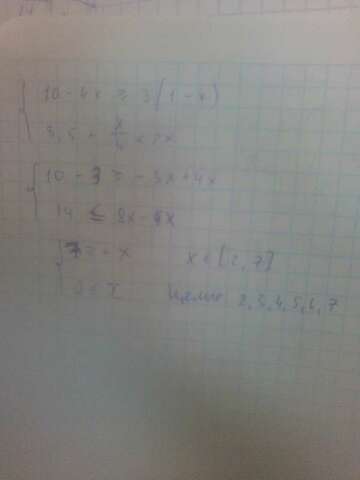 10 - 4x ≥ 3(1 - x)
3,5 + x/4 < 2x
10 - 3 ≥ - 3x + 4x
14 ≤ 8x - x
7 ≥ x
2 ≤ x
x ∈ [2, 7]
Целые 2, 3, 4, 5, 6, 7